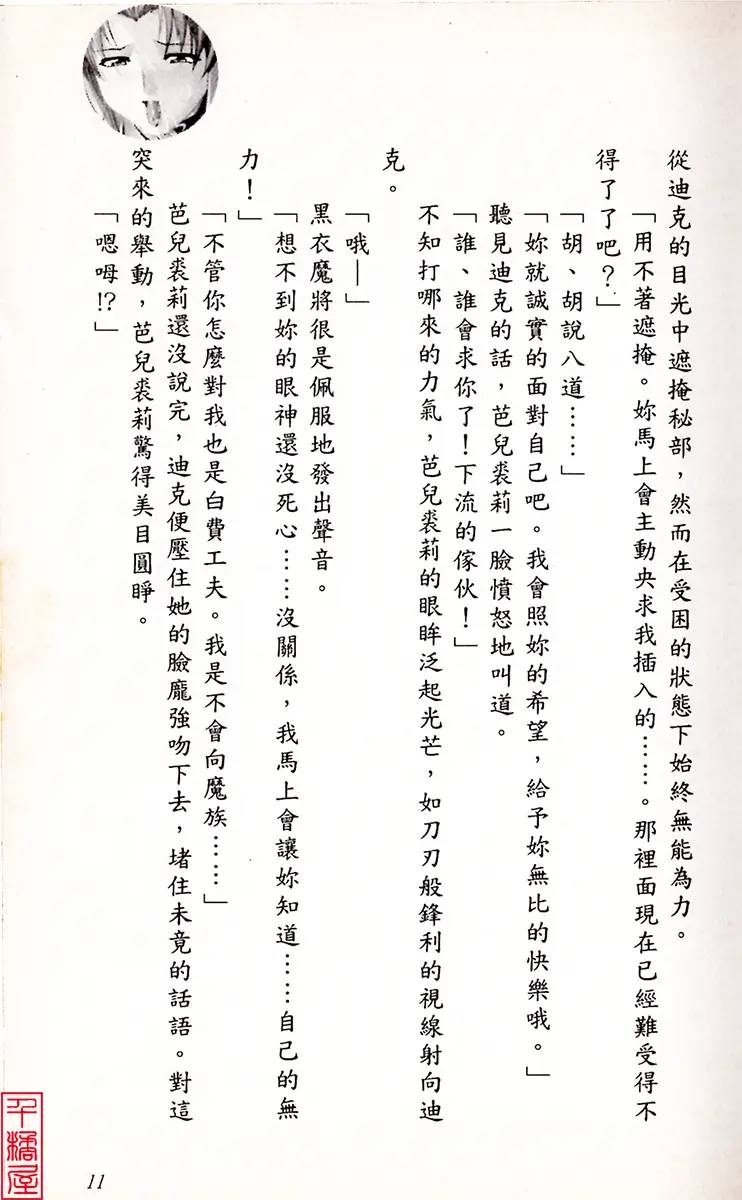 從迪克的目光中遮掩秘部，然而在受困的狀態下始終無能為力。
「用不著遮掩。妳馬上會主動央求我插入的……。那裡面現在已經難受得不
得了了吧？」
「胡、胡說八道……」
「妳就誠實的面對自己吧。我會照妳的希望，給予妳無比的快樂哦。」
聽見迪克的話，芭兒裘莉一臉憤怒地叫道。
「誰、誰會求你了！下流的傢伙！」
不知打哪來的力氣，芭兒裘莉的眼眸泛起光芒，如刀刃般鋒利的視線射向迪
克。
「哦—」
黑衣魔將很是佩服地發出聲音。
「想不到妳的眼神還沒死心……沒關係，我馬上會讓妳知道……自己的無
力！」
「不管你怎麼對我也是白費工夫。我是不會向魔族……」
芭兒裘莉還沒說完，迪克便壓住她的臉龐強吻下去，堵住未竟的話語。對這
突來的舉動，芭兒裘莉驚得美目圓睜。
「嗯呣!?」
11
千橘屋